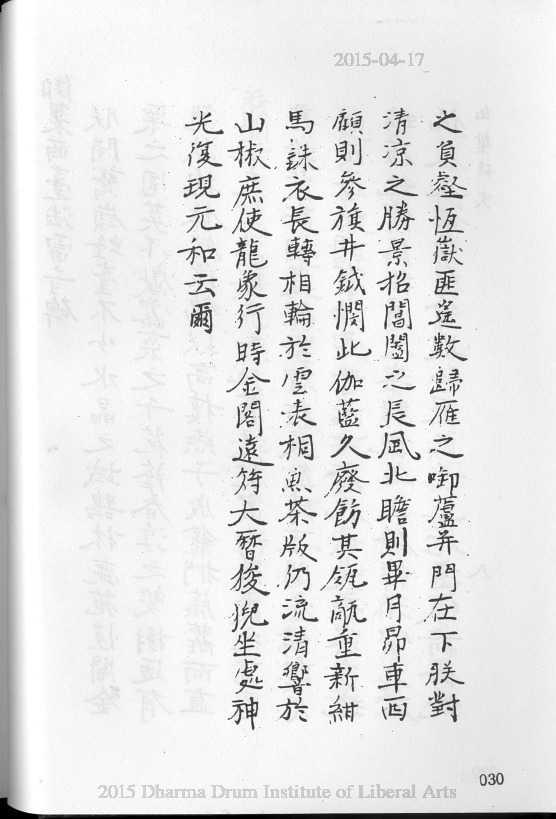 2015-04-17
之負壑恆嶽匪遙數歸雁之啣蘆并門在下朕對
清涼之勝景招閶闔之長風北瞻則畢月昴車西
顧則參旗井鉞憫此伽藍久廢飭其瓴甋重新紺
馬銖衣長轉相輪於雲表桐魚茶版仍流清響於
山椒庶使龍象行時金閣遠符大曆狻猊坐處神
光復現元和云爾
030
2015 Dharma Drum Institute of Liberal Arts